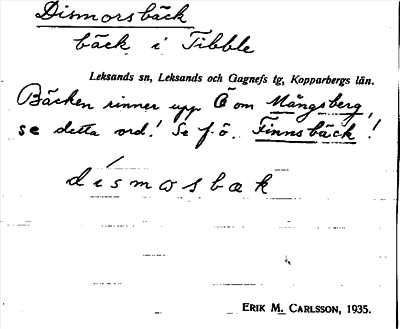 Dismorsbäck
bäck i Tibble
Leksands sn, Leksands och Gagnefs tg, Kopparbergs län.
Bäcken rinner upp Ö om Mångsberg,
se detta ord! Se f. ö. Finnsbäck!
dísmɷsbæk
ERIK M. CARLSSON, 1935.